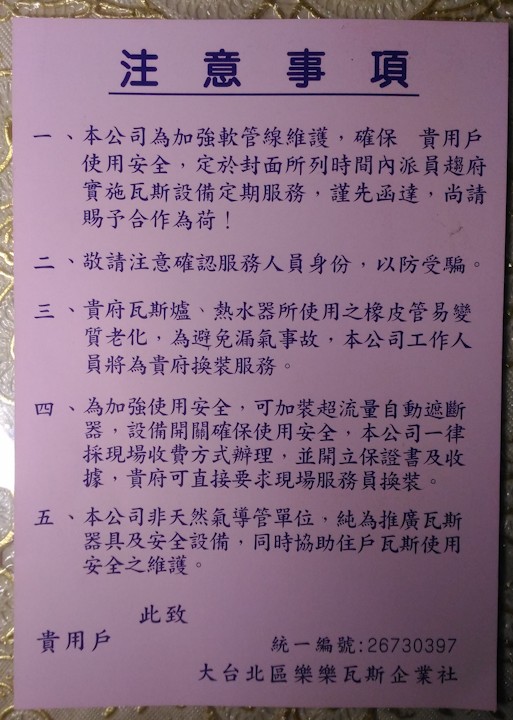 注意事項
一、本公司為加強軟管線維護，確保　貴用戶
使用安全，定於封面所列時間內派員趨府
實施瓦斯設備定期服務，謹先函達，尚請
賜予合作為荷！
二、敬請注意確認服務人員身份，以防受騙。
三、貴府瓦斯爐、熱水器所使用之橡皮管易變
質老化，為避免漏氣事故，本公司工作人
員將為貴府換裝服務。
四、為加強使用安全，可加裝超流量自動遮斷
器，設備開關確保使用安全，本公司一律
採現場收費方式辦理，並開立保證書及收
據，貴府可直接要求現場服務員換裝。
五、本公司非天然氣導管單位，純為推廣瓦斯
器具及安全設備，同時協助住戶瓦斯使用
安全之維護。
此致
貴用戶
統一編號:26730397
大台北區樂樂瓦斯企業社